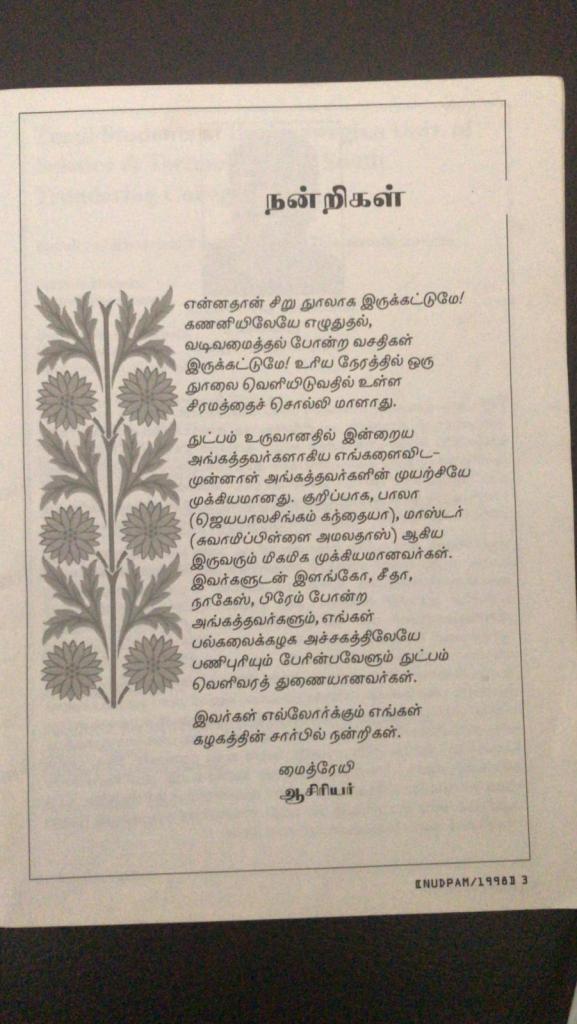 நன்றிகள்
என்னதான் சிறு நூலாக இருக்கட்டுமே!
கணனியிலேயே எழுதுதல்,
வடிவமைத்தல் போன்ற வசதிகள்
இருக்கட்டுமே! உரிய நேரத்தில் ஒரு
நூலை வெளியிடுவதில் உள்ள
சிரமத்தைச் சொல்லி மாளாது.
நுட்பம் உருவானதில் இன்றைய
அங்கத்தவர்களாகிய எங்களைவிட-
முன்னாள் அங்கத்தவர்களின் முயற்சியே
முக்கியமானது. குறிப்பாக, பாலா
(ஜெயபாலசிங்கம் கந்தையா), மாஸ்டர்
(சுவாமிப்பிள்ளை அமலதாஸ்) ஆகிய
இருவரும் மிகமிக முக்கியமானவர்கள்.
இவர்களுடன் இளங்கோ, சீதா,
நாகேஸ், பிரேம் போன்ற
அங்கத்தவர்களும், எங்கள்
பல்கலைக்கழக அச்சகத்திலேயே
பணிபுரியும் பேரின்பவேளும் நுட்பம்
வெளிவரத் துணையானவர்கள்.
இவர்கள் எல்லோர்க்கும் எங்கள்
கழகத்தின் சார்பில் நன்றிகள்.
மைத்ரேயி
ஆசிரியர்
[NUDPAM/1998] 3